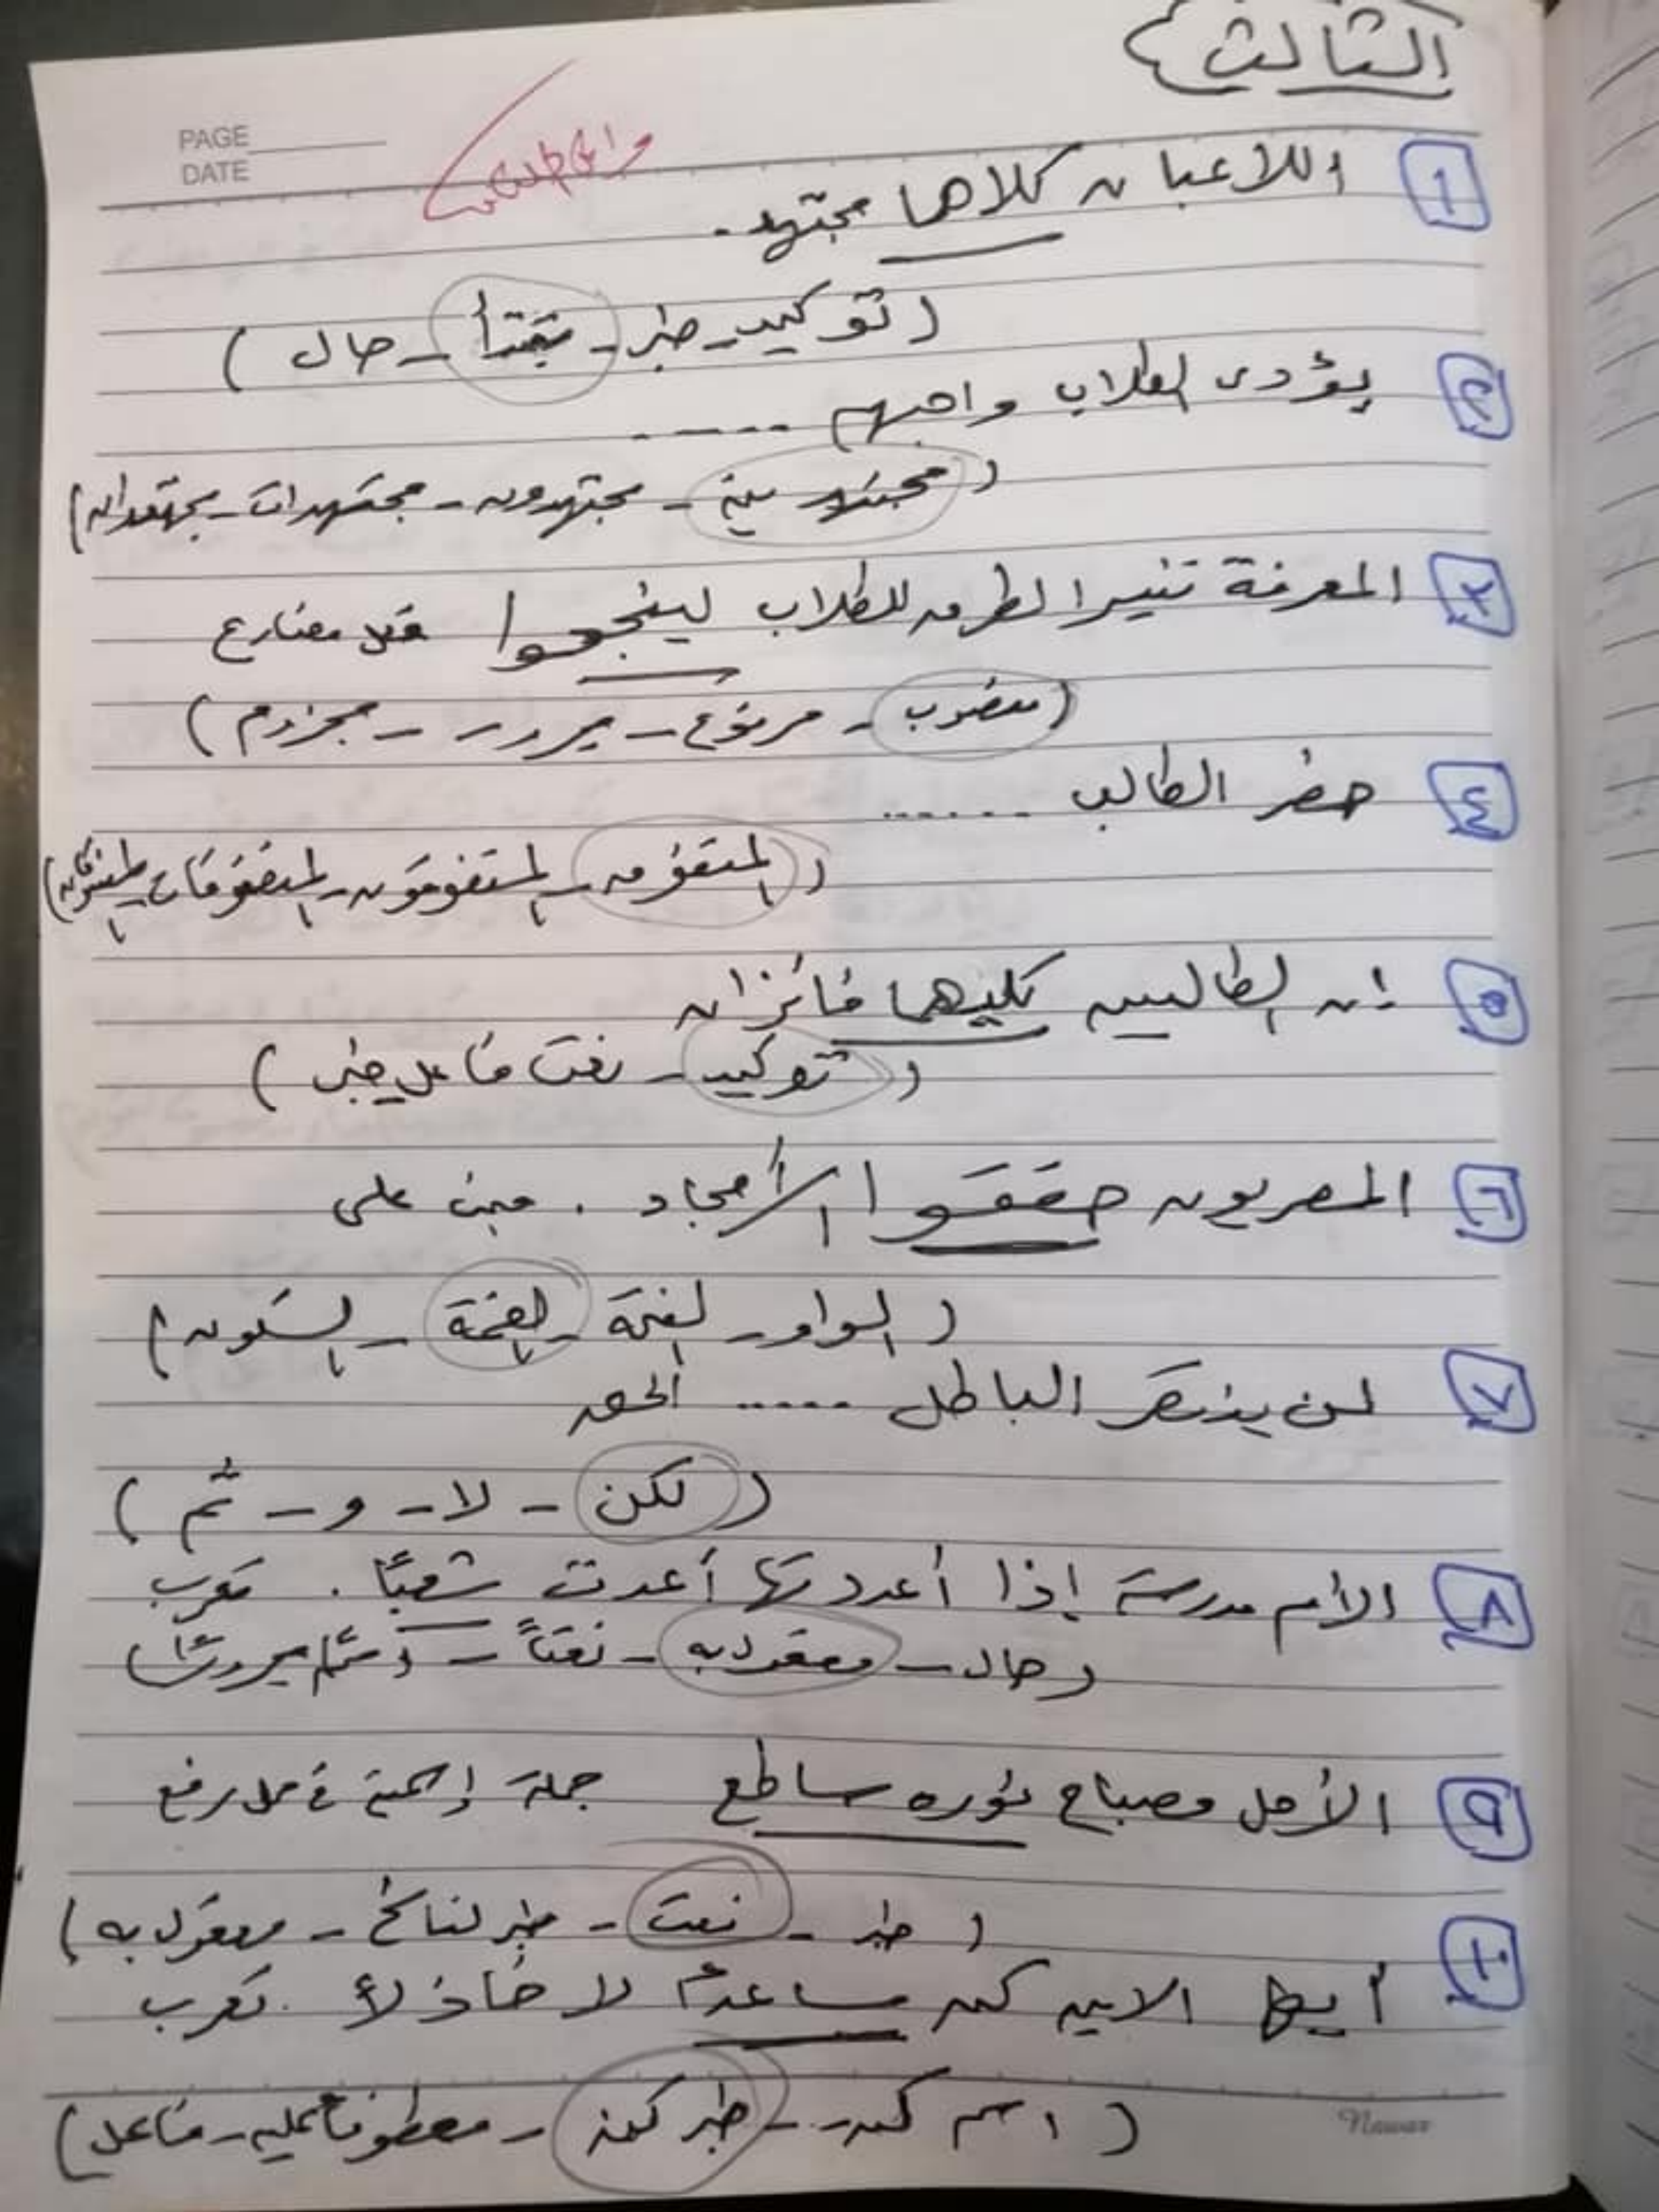 الثالث
PAGE
DATE
١ اللاعبان كلاهما مجتهد.
( توكيد - خبر - مبتدأ - حال )
٢ يؤدى الطلاب واجبهم ......
( مجتهدين - مجتهدون - مجتهدات - مجتهدان )
٣ المعرفة تنير الطرق للطلاب لينجحوا فعل مضارع
( منصوب - مرفوع - مجرور - مجزوم )
٤ حضر الطالب ......
( المتفوق - المتفوقون - المتفوقات - المتفوقان )
٥ إن الطالبين كليهما فائزان
( توكيد - نعت - فاعل - خبر )
٦ المصريون حققوا الأمجاد . مبنى على
( الواو - الفتحة - الضمة - السكون )
٧ لن ينتصر الباطل ..... الحق
( لكن - لا - و - ثم )
٨ الأم مدرسة إذا أعددتها أعددت شعبًا . تعرب
( حال - مفعول به - نعتاً -
٩ الأمل مصباح نوره ساطع جملة إسمية في محل رفع
( خبر - نعت - خبر لناسخ - مفعول به )
١٠ أيها الابن كن مساعدًا لا خاذلاً . تعرب
( اسم كن - خبر كن - معطوف عليه - فاعل )
Nawar